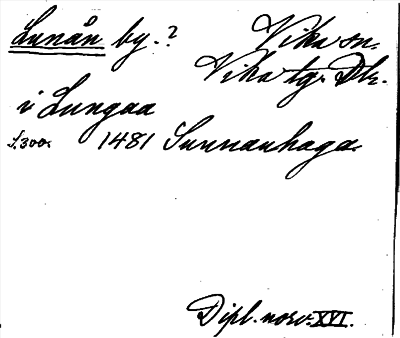 Lunån by.? Vika sn.
Vika tg. Dlr.
i Lungaa
s.300. 1481 Sunnanhaga.
Dipl. norv. XVI.